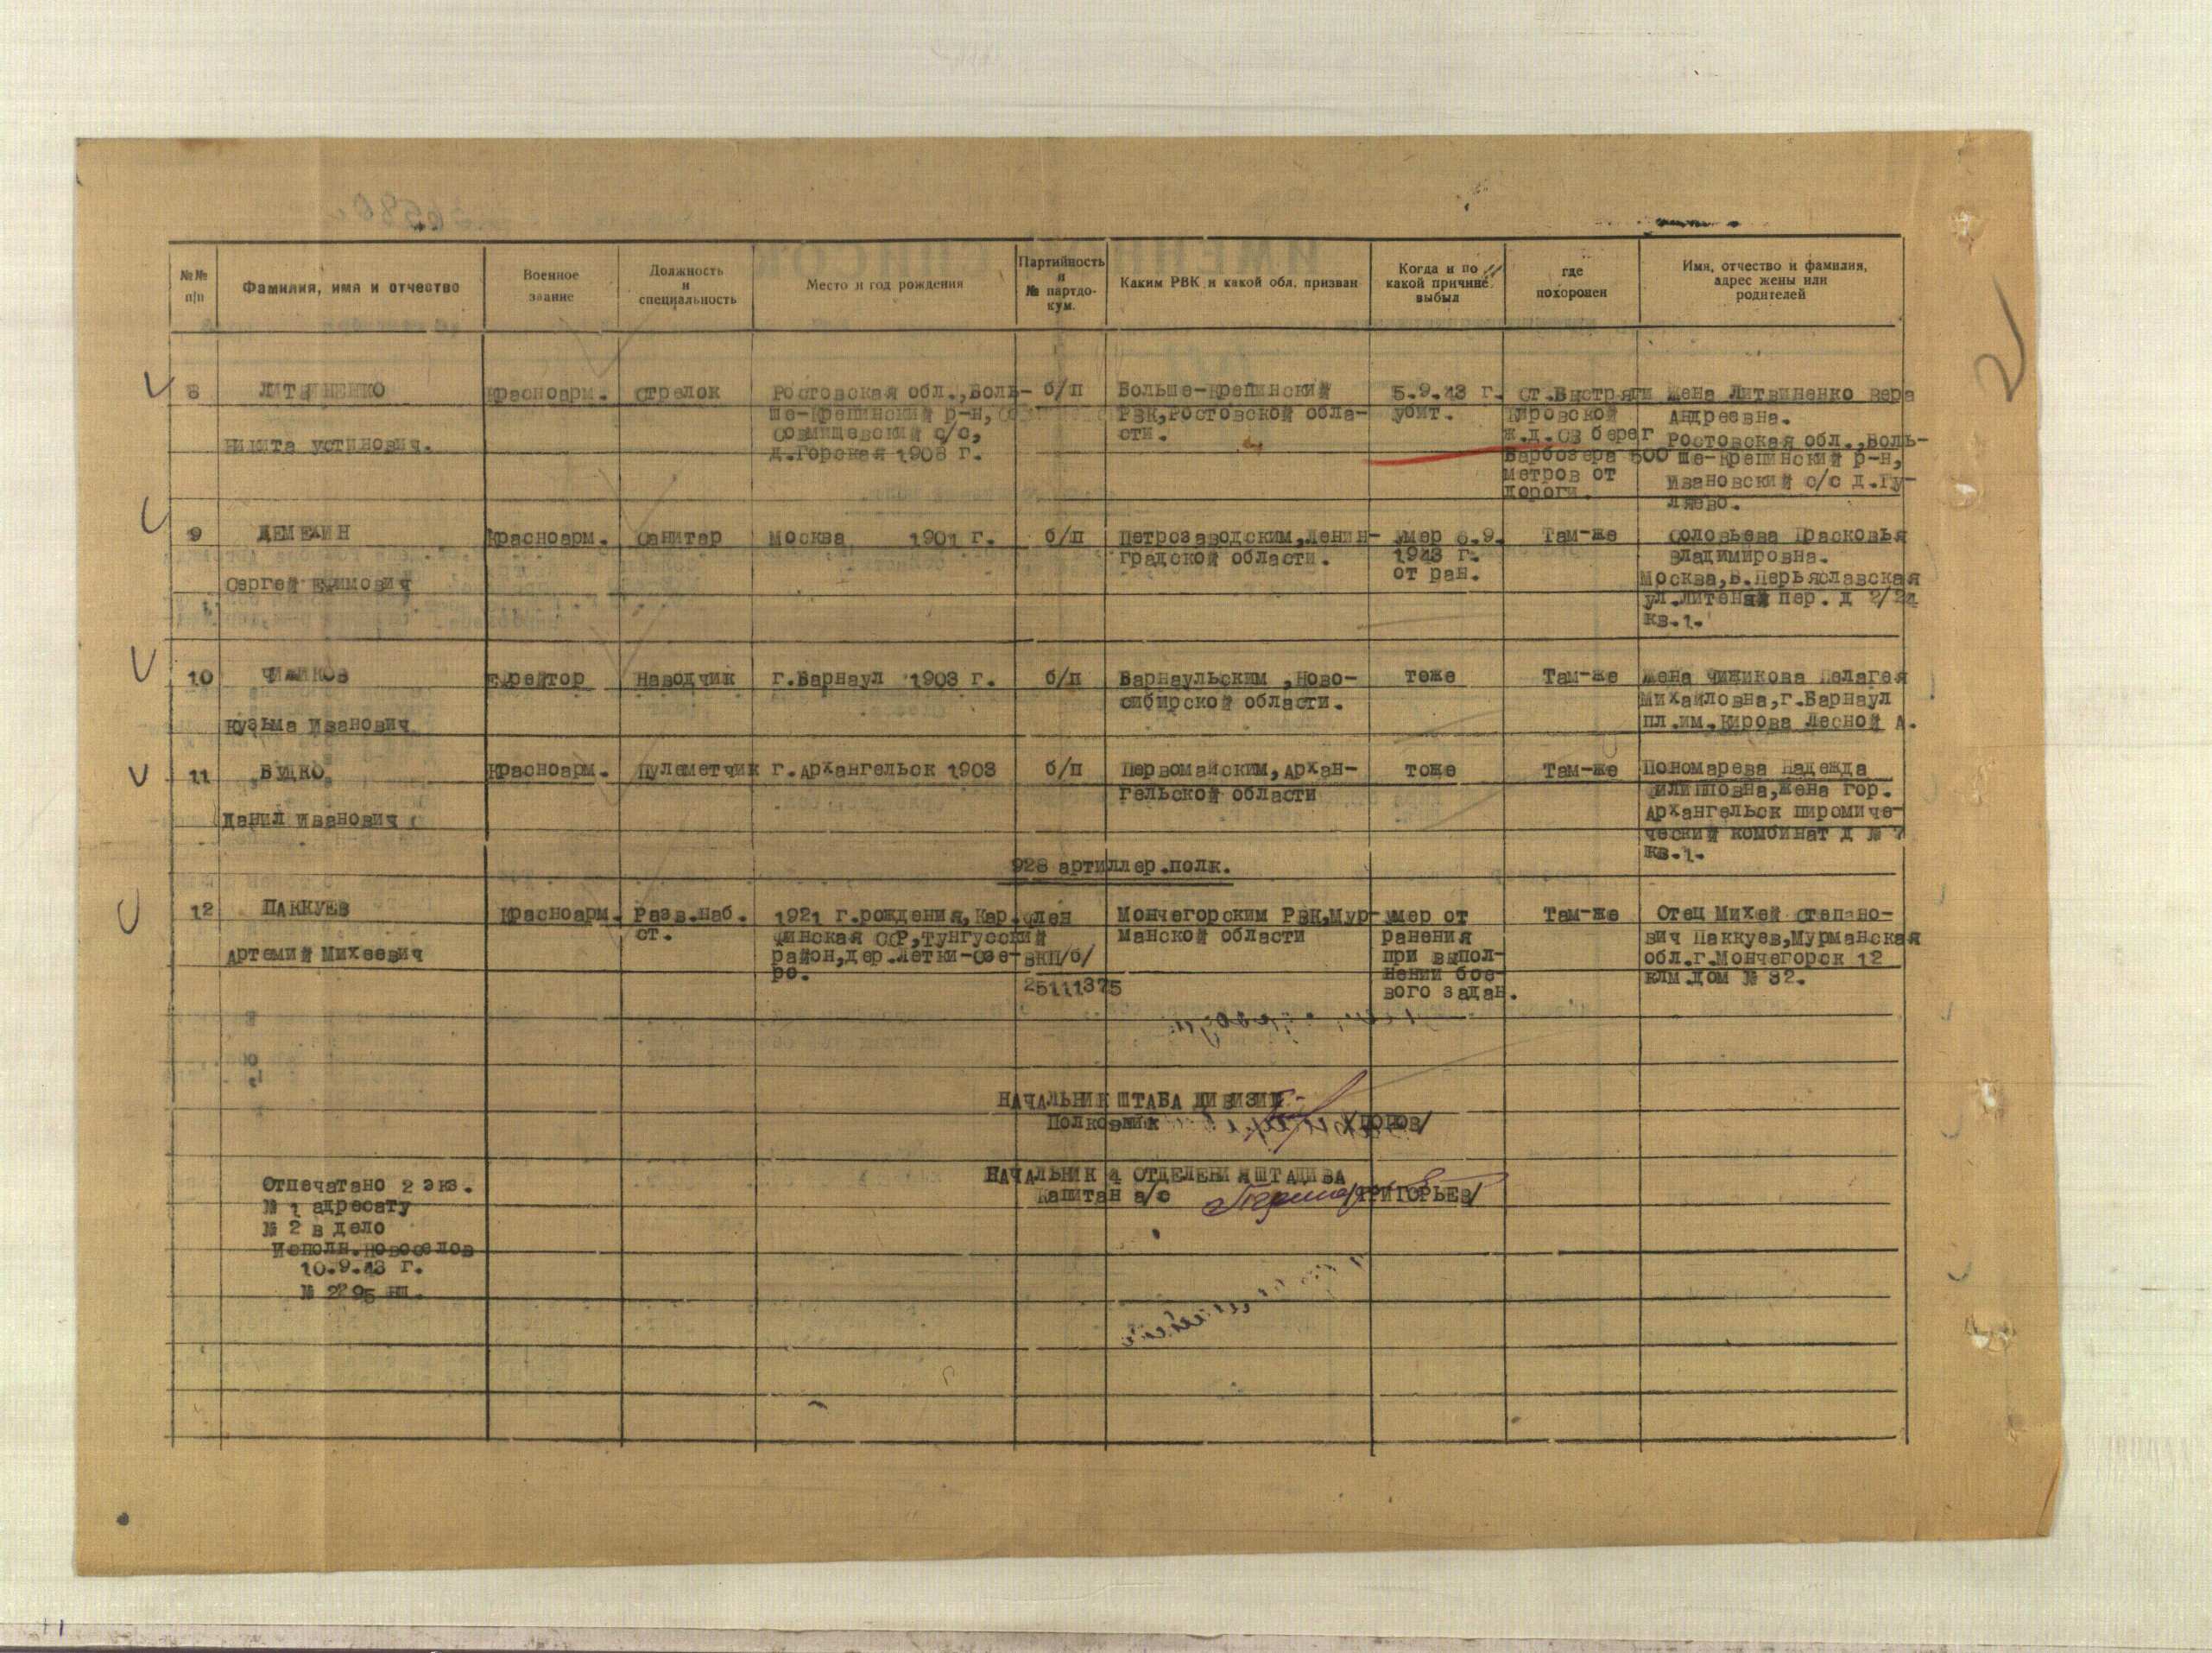 №№ п/п
Фамилия, имя и отчество
Военное звание
Должность и специальность
Место и год рождения
Партийность и № партдокум.
Каким РВК и какой обл. призван
Когда и по какой причине выбыл
где похоронен
Имя, отчество и фамилия, адрес жены или родителей
8
ЛИТВИНЕНКО
Никита Устинович.
Красноарм.
Стрелок
Ростовская обл.,Боль-
ше-Крепинский р-н,
с/с,
д.Горская 1903 г.
б/п
Больше-Крепинский
РВК,Ростовской обла-
сти.
5.9.43 г.
убит.
Ст.Быстряги
Кировской
ж.д. берег
Барбозера 500
метров от
дороги.
Жена Литвиненко Вера
Андреевна.
Ростовская обл.,Боль-
ше-Крепинский р-н,
Ивановский с/с д.Гу-
ляево.
9
ДЕМЕХИН
Сергей Ефимович
Красноарм.
Санитар
Москва 1901 г.
б/п
Петрозаводским,Ленин-
градской области.
умер 6.9.
1943 г.
от ран.
Там-же
Соловьева Прасковья
Владимировна.
Москва,Б.Перьяславская
ул.Литеный пер. д 2/24
кв.1.
10
Кузьма Иванович
Ефрейтор
Наводчик
г.Барнаул 1903 г.
б/п
Барнаульским ,Ново-
сибирской области.
тоже
Там-же
Жена Чиникова Пелагея
Михайловна,г.Барнаул
пл.им.Кирова Лесной
11
БУДКО
Данил Иванович
Красноарм.
Пулеметчик
г.Архангельск 1903
б/п
Первомайским,Архан-
гельской области
тоже
Там-же
Пономарева Надежда
Филипповна,жена гор.
Архангельск пиромиче-
ческий комбинат д № 7
кв.1.
928 артиллер.полк.
12
ПАККУЕВ
Артемий Михеевич
Красноарм.
Разв.наб.
ст.
1921 г.рождения,Каро-
финская ССР,Тунгусский
район,дер.Летки-Озе-
ро.
член
ВКП/б/
25111375
Мончегорским РВК,Мур-
манской области
умер от
ранения
при выпол-
нении бое-
вого задан.
Там-же
Отец Михей Степано-
вич Паккуев,Мурманская
обл.г.Мончегорск 12
клм.дом № 32.
НАЧАЛЬНИК ШТАБА ДИВИЗИИ-
Полковник
НАЧАЛЬНИК 4 ОТДЕЛЕНИЯ ШТАДИВА
Капитан а/с /ГРИГОРЬЕВ/
Отпечатано 2 экз.
№ 1 адресату
№ 2 в дело
Исполн.Новоселов
10.9.43 г.
№ 2295 нш.